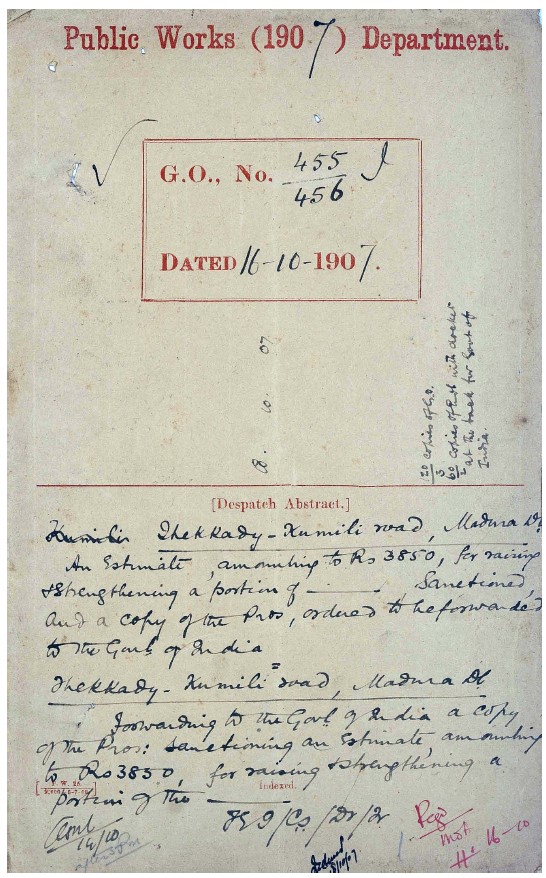 Public Works (1907) Department.
G.O., No. 455 I
456
DATED 16-10-1907.
8. 10. 07
20 copies of G.O.
3
60 copies of R with docket
2 at the back for Govt of
India.
[Despatch Abstract.]
Kumili Thekkady - Kumili road, Madura Dt
An Estimate, amounting to Rs 3850, for raising
& strengthening a portion of ——— Sanctioned,
and a copy of the Pros, ordered to be forwarded
to the Govt of India
Thekkady - Kumili road, Madura Dt
Forwarding to the Govt of India a copy
of the Pros: sanctioning an Estimate, amounting
to Rs 3850, for raising & strengthening a
portion of the ———
Indexed.
14/10
Regr
16-10